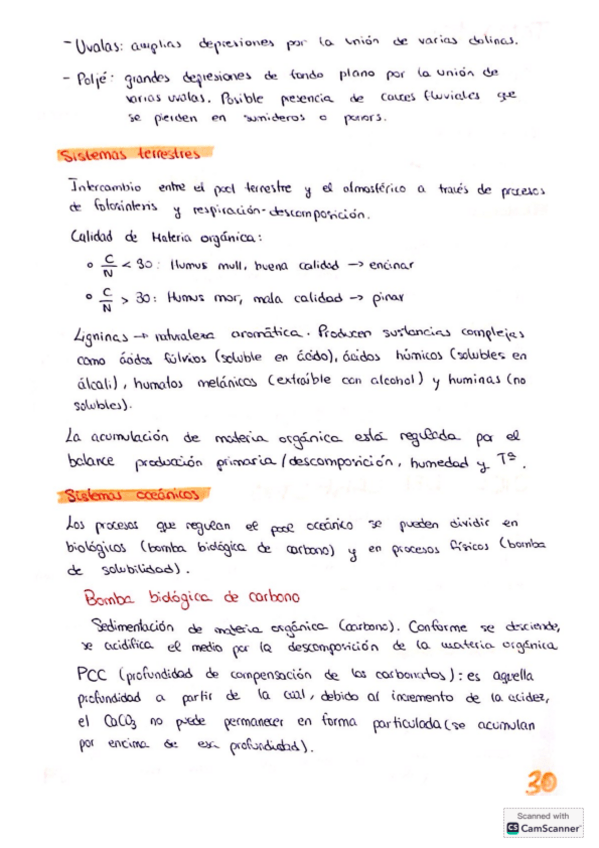 - Uvalas: amplias depresiones por la unión de varias dolinas.
- Poljé: grandes depresiones de fondo plano por la unión de
varias uvalas. Posible presencia de cauces fluviales que
se pierden en sumideros o ponors.
Sistemas terrestres
Intercambio entre el pool terrestre y el atmosférico a través de procesos
de fotosíntesis y respiración-descomposición.
Calidad de Materia orgánica:
o C/N < 30: Humus mull, buena calidad → encinar
o C/N > 30: Humus mor, mala calidad → pinar
Ligninas → naturaleza aromática. Producen sustancias complejas
como ácidos fúlvicos (soluble en ácido), ácidos húmicos (solubles en
álcali), humatos melánicos (extraíble con alcohol) y huminas (no
solubles).
La acumulación de materia orgánica está regulada por el
balance producción primaria/descomposición, humedad y Tª.
Sistemas oceánicos
Los procesos que regulan el pool oceánico se pueden dividir en
biológicos (bomba biológica de carbono) y en procesos físicos (bomba
de solubilidad).
Bomba biológica de carbono
Sedimentación de materia orgánica (carbono). Conforme se desciende,
se acidifica el medio por la descomposición de la materia orgánica
PCC (profundidad de compensación de los carbonatos): es aquella
profundidad a partir de la cual, debido al incremento de la acidez,
el CaCO3 no puede permanecer en forma particulada (se acumulan
por encima de esa profundidad).
30
Scanned with
CS CamScanner